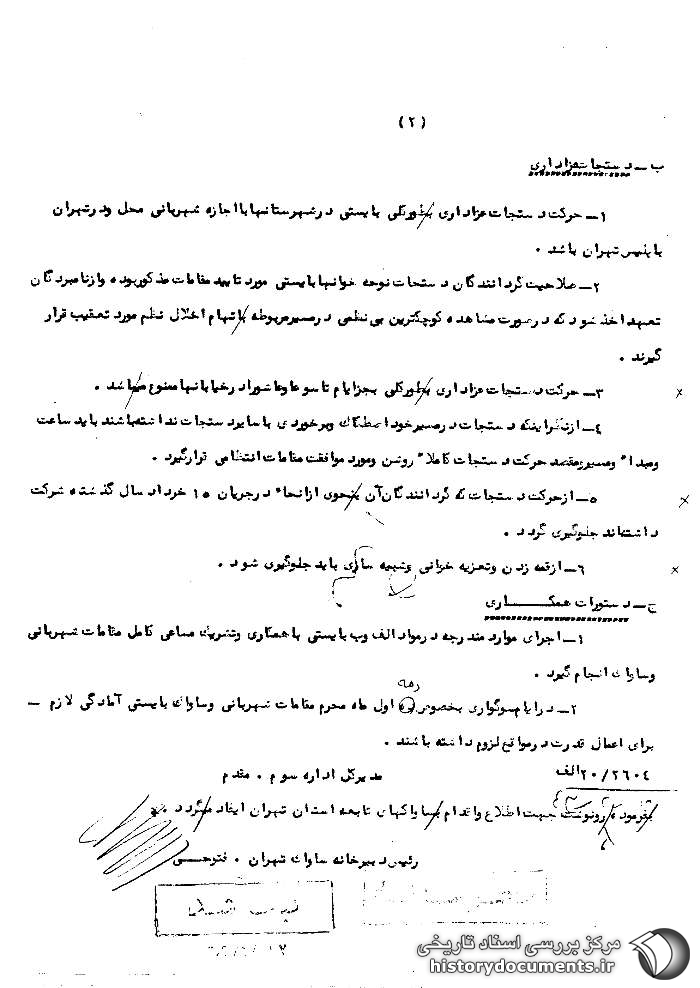 (۲)
ب ـ دستجات عزاداری
۱ـ حرکت دستجات عزاداری بطورکلی بایستی در شهرستانها با اجازه شهربانی محل ودر تهران
با پلیس تهران باشد .
۲ـ صلاحیت گردانندگان دستجات نوحه خوانها بایستی مورد تایید مقامات مذکور بوده واز نامبردگان
تعهد اخذ شود که در صورت مشاهده کوچکترین بی نظمی در مسیر مربوطه باتهام اخلال نظم مورد تعقیب قرار
گیرند .
۳ـ حرکت دستجات عزاداری بطورکلی بجز ایام تاسوعا وعاشورا در خیابانها ممنوع میباشد .
۴ـ ازنظر اینکه دستجات در مسیر خود اصطکاک وبرخوردی با سایر دستجات نداشته باشند باید ساعت
ومبداء ومسیر ومقصد حرکت دستجات کاملا روشن ومورد موافقت مقامات انتظامی قرارگیرد .
۵ـ ازحرکت دستجات که گردانندگان آن بنحوی از انحاء در جریان ۱۵ خرداد سال گذشته شرکت
داشته‌اند جلوگیری گردد .
۶ـ ازقمه زدن وتعزیه خوانی وشبیه سازی باید جلوگیری شود .
ج ـ دستورات همکاری
۱ـ اجرای موارد مندرجه در مواد الف وب بایستی با همکاری وتشریک مساعی کامل مقامات شهربانی
وساواک انجام گیرد .
۲ـ در ایام سوگواری بخصوص دهه اول ماه محرم مقامات شهربانی وساواک بایستی آمادگی لازم ـ
برای اعمال قدرت در مواقع لزوم داشته باشند .
۲۰/۲۶۰۴ الف مدیرکل اداره سوم . مقدم
بفرموده رونوشت جهت اطلاع واقدام بساواکهای تابعه استان تهران ایفاد میگردد .
رئیس دبیرخانه ساواک تهران . فتوحی
ثبت شد
مرکز بررسی اسناد تاریخی
historydocuments.ir